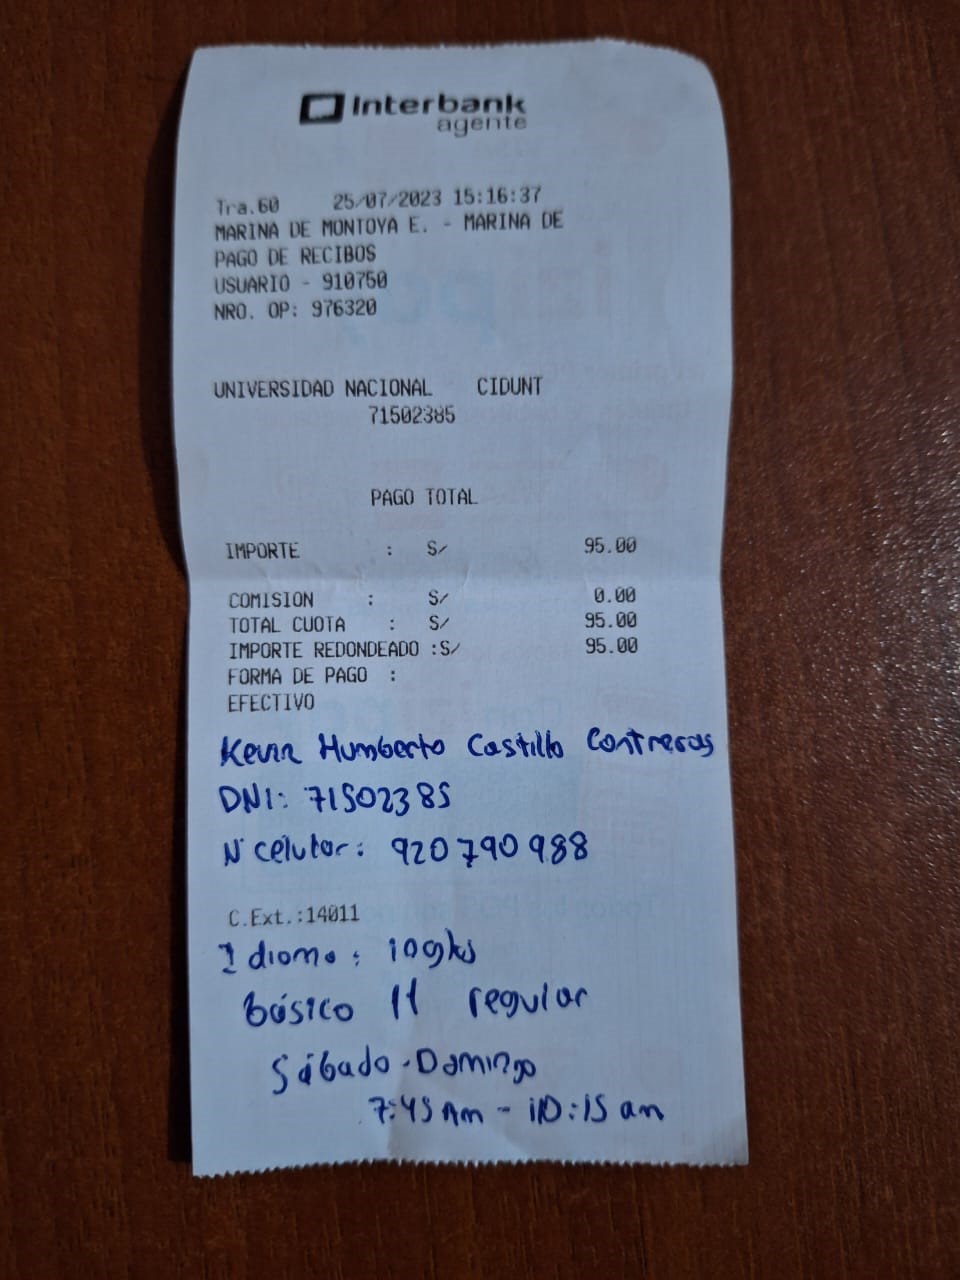 Interbank
agente
Tra.60 25/07/2023 15:16:37
MARINA DE MONTOYA E. - MARINA DE
PAGO DE RECIBOS
USUARIO - 910750
NRO. OP: 976320
UNIVERSIDAD NACIONAL CIDUNT
71502385
PAGO TOTAL
IMPORTE : S/ 95.00
COMISION : S/ 0.00
TOTAL CUOTA : S/ 95.00
IMPORTE REDONDEADO :S/ 95.00
FORMA DE PAGO :
EFECTIVO
Kevin Humberto Castillo Contreras
DNI: 71502385
N° célular: 920 790 988
C.Ext.:14011
Idioma: ingles
básico 11 regular
Sábado - Domingo
7:45 Am - 10:15 am